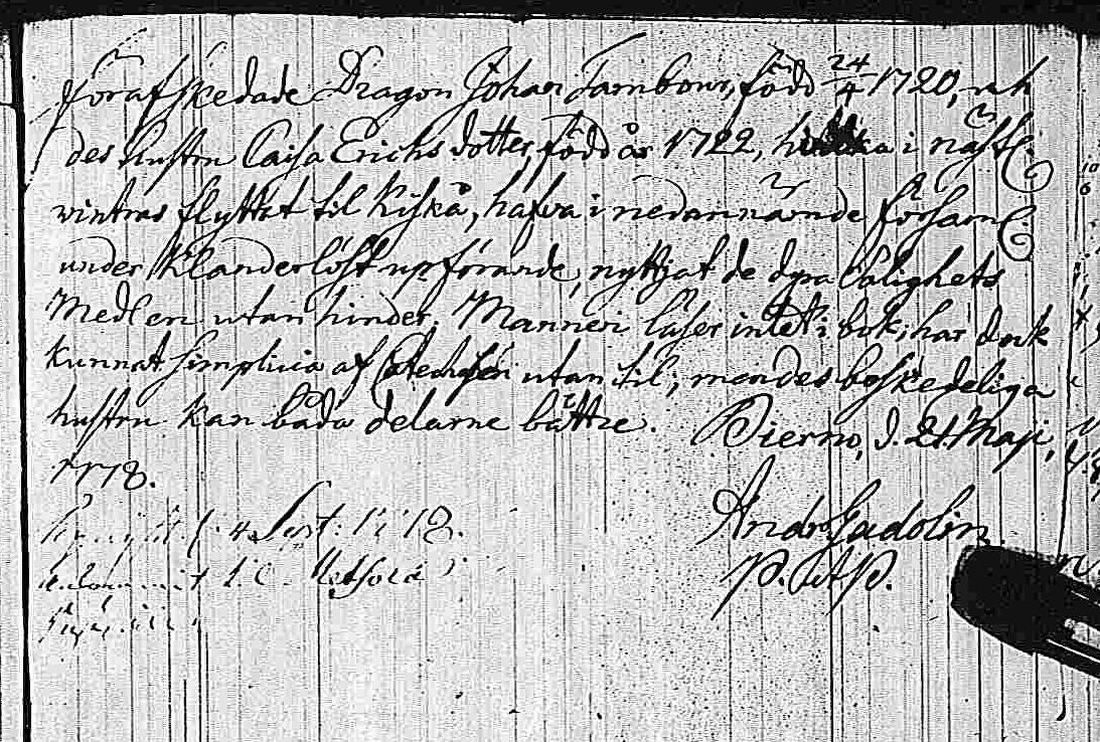 Förafskedade Dragon Johan Tambour, född 24/4 1720, och
des hustru Caisa Erichs dotter, född år 1722, hvilka i nästl.
vintras flyttat til Kiskå, hafva i nedannämde församl.
under klanderlöst upförande, nyttjat de dyra Salighets
Medlen utan hinder. Mannen läser intet i bok; har dock
kunnat simplicia af Catechesen utan til; men des beskedeliga
hustru kan båda delarne bättre. Bierno, d. 21 Maji,
1778.
Andr. Gadolin
P. &P.
Sept: 1778.